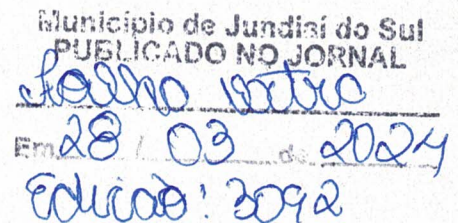 Município de Jundiaí do Sul
PUBLICADO NO JORNAL
Folha Extra
Em 28 / 03 de 2024
Edição: 3092